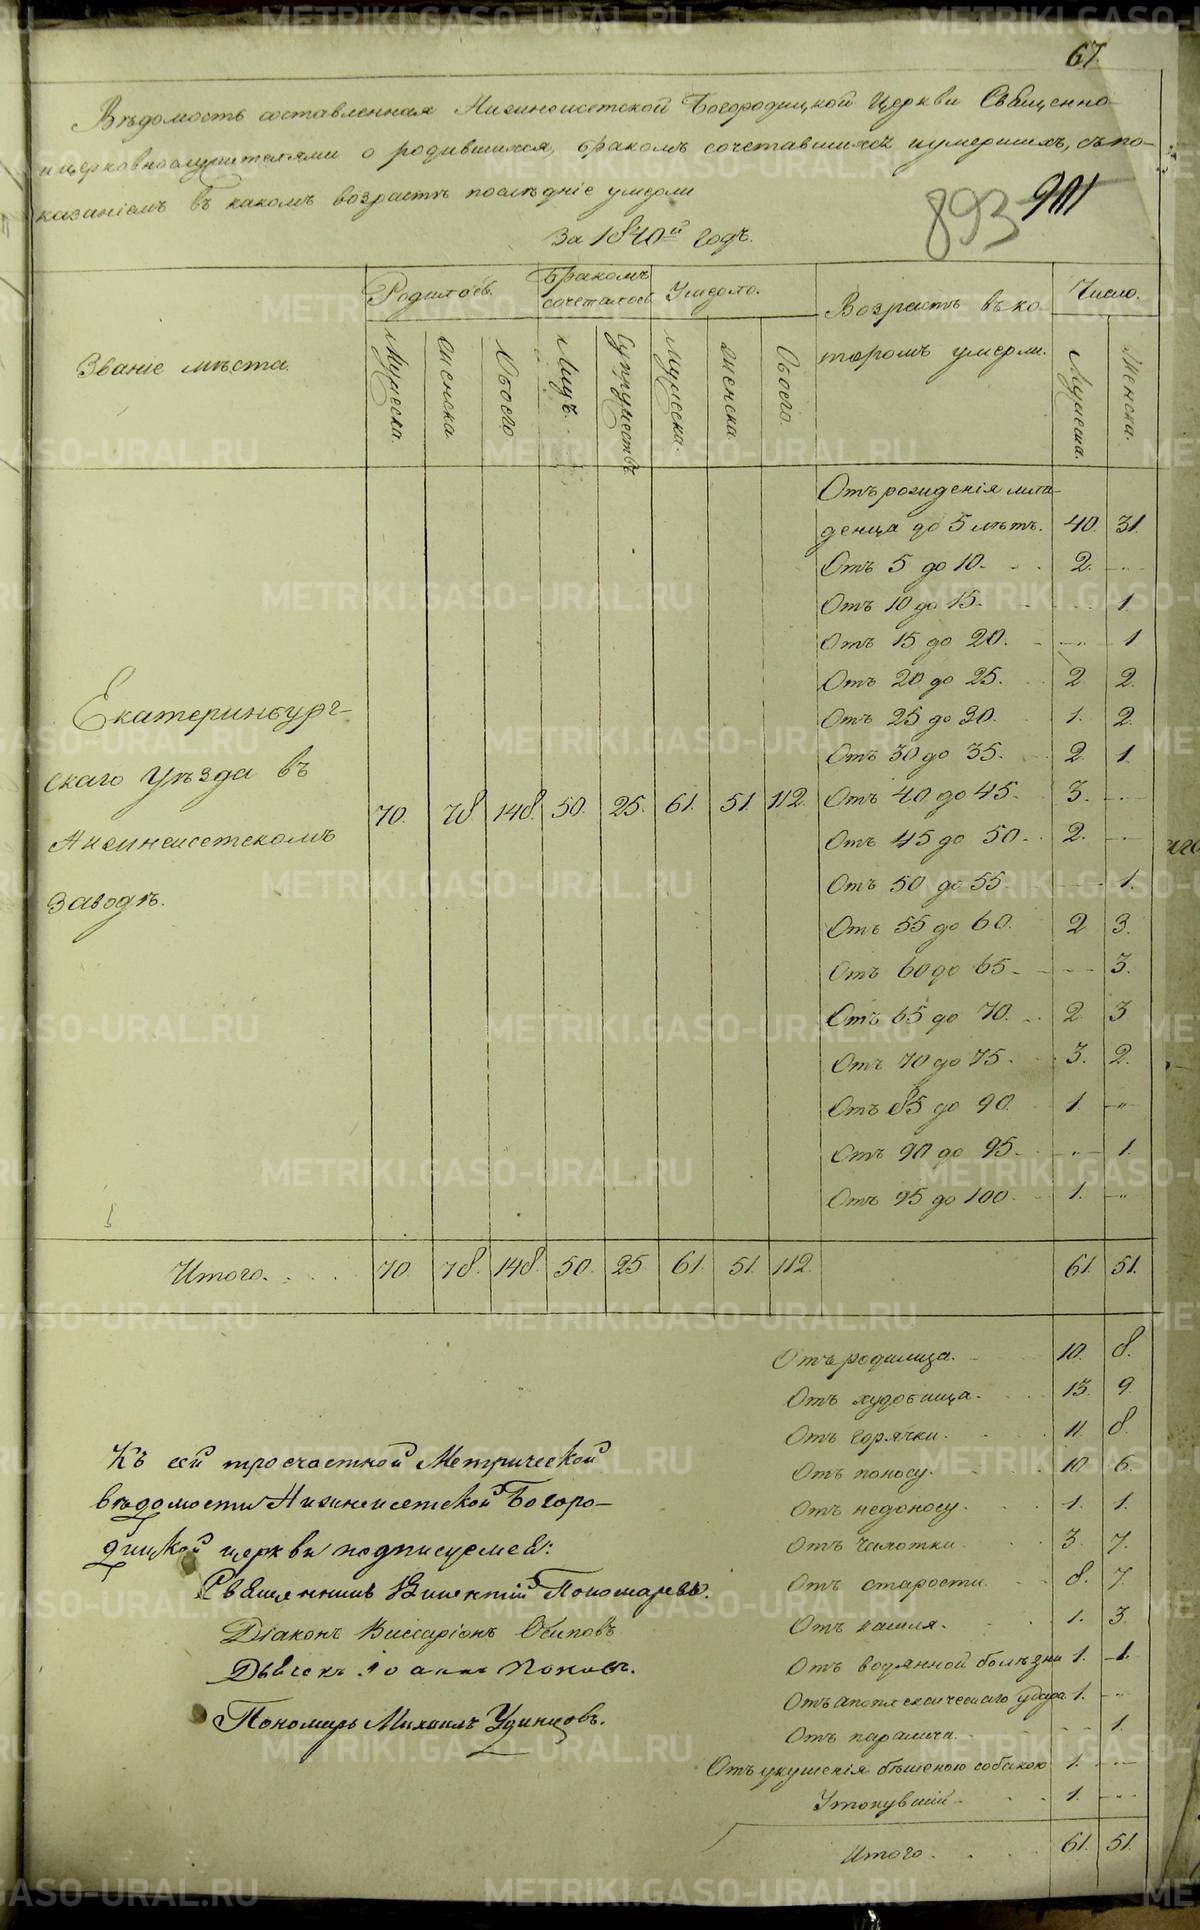 67.
Вѣдомость составленная Нижнеисетской Богородицкой Церкви Священно-
и церковнослужителями о родившихся, бракомъ сочетавшихся и умершихъ, съ по-
казаніемъ въ какомъ возрастѣ послѣдніе умерли
893 901
За 1840й годъ.
Званіе мѣста. Родилось. Бракомъ сочеталось Умерло. Возрастъ въ ко- Число.
Мужеска. Женска Обоего Лицъ. Супружествъ Мужеска. Женска. Обоего. торомъ умерли. Мужеска. Женска.
Отъ рожденія мла-
денца до 5 лѣтъ. 40. 31.
Отъ 5 до 10. 2. "
Отъ 10 до 15. 1.
Отъ 15 до 20. " 1
Отъ 20 до 25. 2 2.
Отъ 25 до 30. 1. 2.
Отъ 30 до 35. 2 1.
Екатеринбург-
скаго Уѣзда въ
Нижнеисетскомъ
Заводѣ.
70. 78. 148. 50. 25. 61. 51. 112.
Отъ 40 до 45. 3.
Отъ 45 до 50. 2.
Отъ 50 до 55. 1.
Отъ 55 до 60. 2 3.
Отъ 60 до 65. 3.
Отъ 65 до 70. 2 3
Отъ 70 до 75. 3. 2.
Отъ 85 до 90. 1. "
Отъ 90 до 95. " 1.
Отъ 95 до 100. 1. "
Итого. 70. 78. 148. 50. 25. 61. 51. 112. 61. 51.
Отъ родимца. 10. 8.
Отъ худобища. 13. 9.
Отъ горячки. 11. 8.
Отъ поносу. 10 6.
Отъ недоносу. 1. 1.
Отъ чахотки. 3. 7.
Отъ старости. 8. 7
Отъ кашля. 1. 3
Отъ водянной болѣзни 1. 1.
Отъ апоплексическаго удара 1. "
Отъ паралича. 1.
Отъ укушенія бѣшеною собакою 1. "
Утонувшій. 1. "
Итого. 61. 51.
Къ сей Метрической
вѣдомости Нижнеисетской Богоро-
дицкой церкви подписуемся:
Священникъ Пономаревъ.
Діаконъ Виссаріонъ Осиповъ
Дьячекъ Іоаннъ Поповъ.
Пономарь Михаилъ Удинцовъ.
METRIKI.GASO-URAL.RU